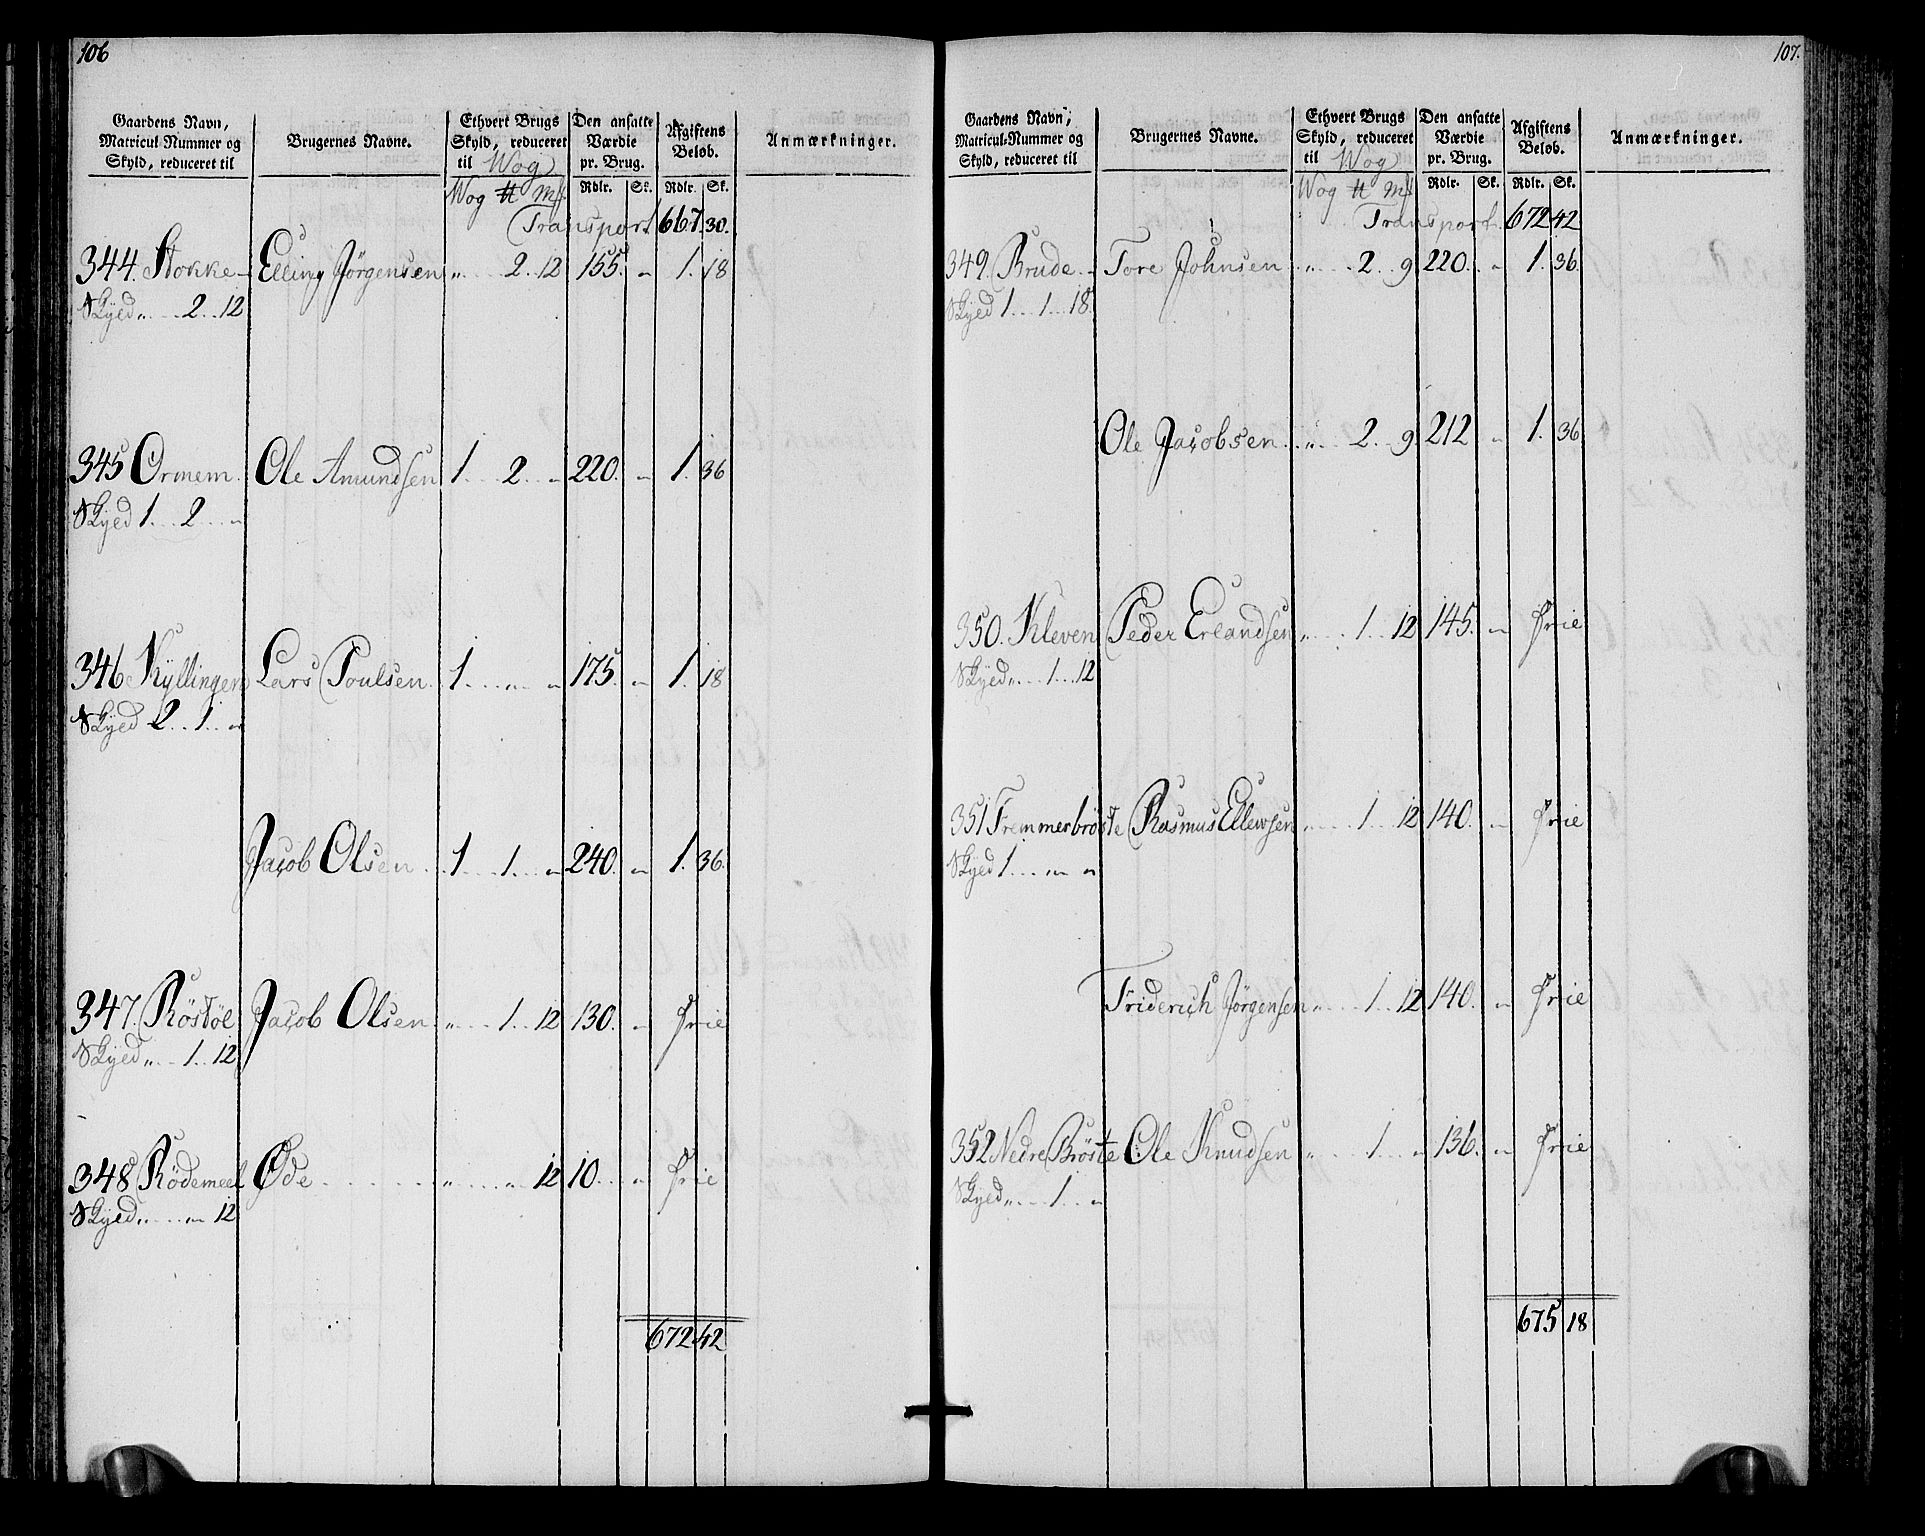 106
Gaardens Navn, Matricul Nummer og Skyld, reduceret til | Brugernes Navne. | Ethvert Brugs Skyld, reduceret til Wog | Den ansatte Værdie pr. Brug. | Afgiftens Beløb. | Anmærkninger.
Wog ℔ Mk | Rdlr. | Sk. | Rdlr. | Sk.
Transport 667. 30.
344. Stokke Elling Jørgensen „ 2. 12 155. „ 1. 18
Skyed „ 2. 12
345 Ormem. Ole Amundsen 1. 2. „ 220. „ 1. 36
Skyed 1. 2. „
346 Kyllingen Lars Poulsen. 1. „ „ 175. „ 1. 18
Skyed 2. 1. „
Jacob Olsen 1. 1. „ 240. „ 1. 36.
347. Röstöl Jacob Olsen „ 1. 12 130. „ Frie
Skyed „ 1. 12
348 Rödemeel Øde „ „ 12 10. „ Frie
Skyed „ „ 12
672 42
107.
Gaardens Navn, Matricul-Nummer og Skyld, reduceret til | Brugernes Navne. | Ethvert Brugs Skyld, reduceret til Wog | Den ansatte Værdie pr. Brug. | Afgiftens Beløb. | Anmærkninger.
Wog ℔ Mk | Rdlr. | Sk. | Rdlr. | Sk.
Transport. 672 42
349. Brude Tore Johnsen „ 2. 9 220. „ 1. 36.
Skyed 1. 1. 18.
Ole Jacobsen „ 2. 9 212 „ 1. 36
350. Kleven Peder Erlandsen „ 1. 12 145. „ Frie
Skyed „ 1. 12
351 Fremmerbröste Rasmus Ellewsen „ 1. 12 140. „ Frie
Skyed 1. „ „
Friderich Jørgensen „ 1. 12 140. „ Frie
352 Nedre Bröste Ole Knudsen „ 1. „ 136. „ Frie
Skyed „ 1. „
675 18